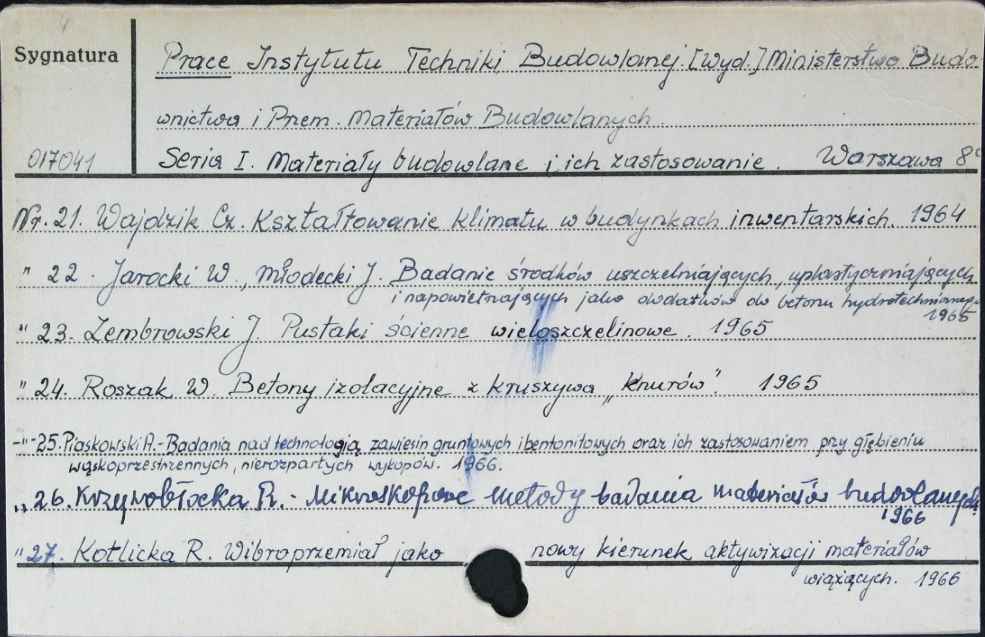 Sygnatura
Prace Instytutu Techniki Budowlanej [Wyd.] Ministerstwo Budo
wnictwa i Przem. Materiałów Budowlanych
017041
Seria I. Materiały budowlane i ich zastosowanie. Warszawa 8°
Nr. 21. Wajdzik Cz. Kształtowanie klimatu w budynkach inwentarskich. 1964
" 22. Jarocki W., Młodecki J. Badanie środków uszczelniających, uplastyczniających
i napowietrzających jako dodatków do betonu hydrotechnicznego
1965
" 23. Zembrowski J. Pustaki ścienne wieloszczelinowe. 1965
" 24. Roszak W. Betony izolacyjne z kruszywa "Knurów". 1965
-"- 25. Piaskowski A. - Badania nad technologią zawiesin gruntowych i bentonitowych oraz ich zastosowaniem przy głębieniu
wąskoprzestrzennych, nierozpartych wykopów. 1966.
" 26. Krzywobłocka R. - Mikroskopowe metody badania materiałów budowlanych
1966
" 27. Kotlicka R. Wibroprzemiał jako nowy kierunek aktywizacji materiałów
wiążących. 1966